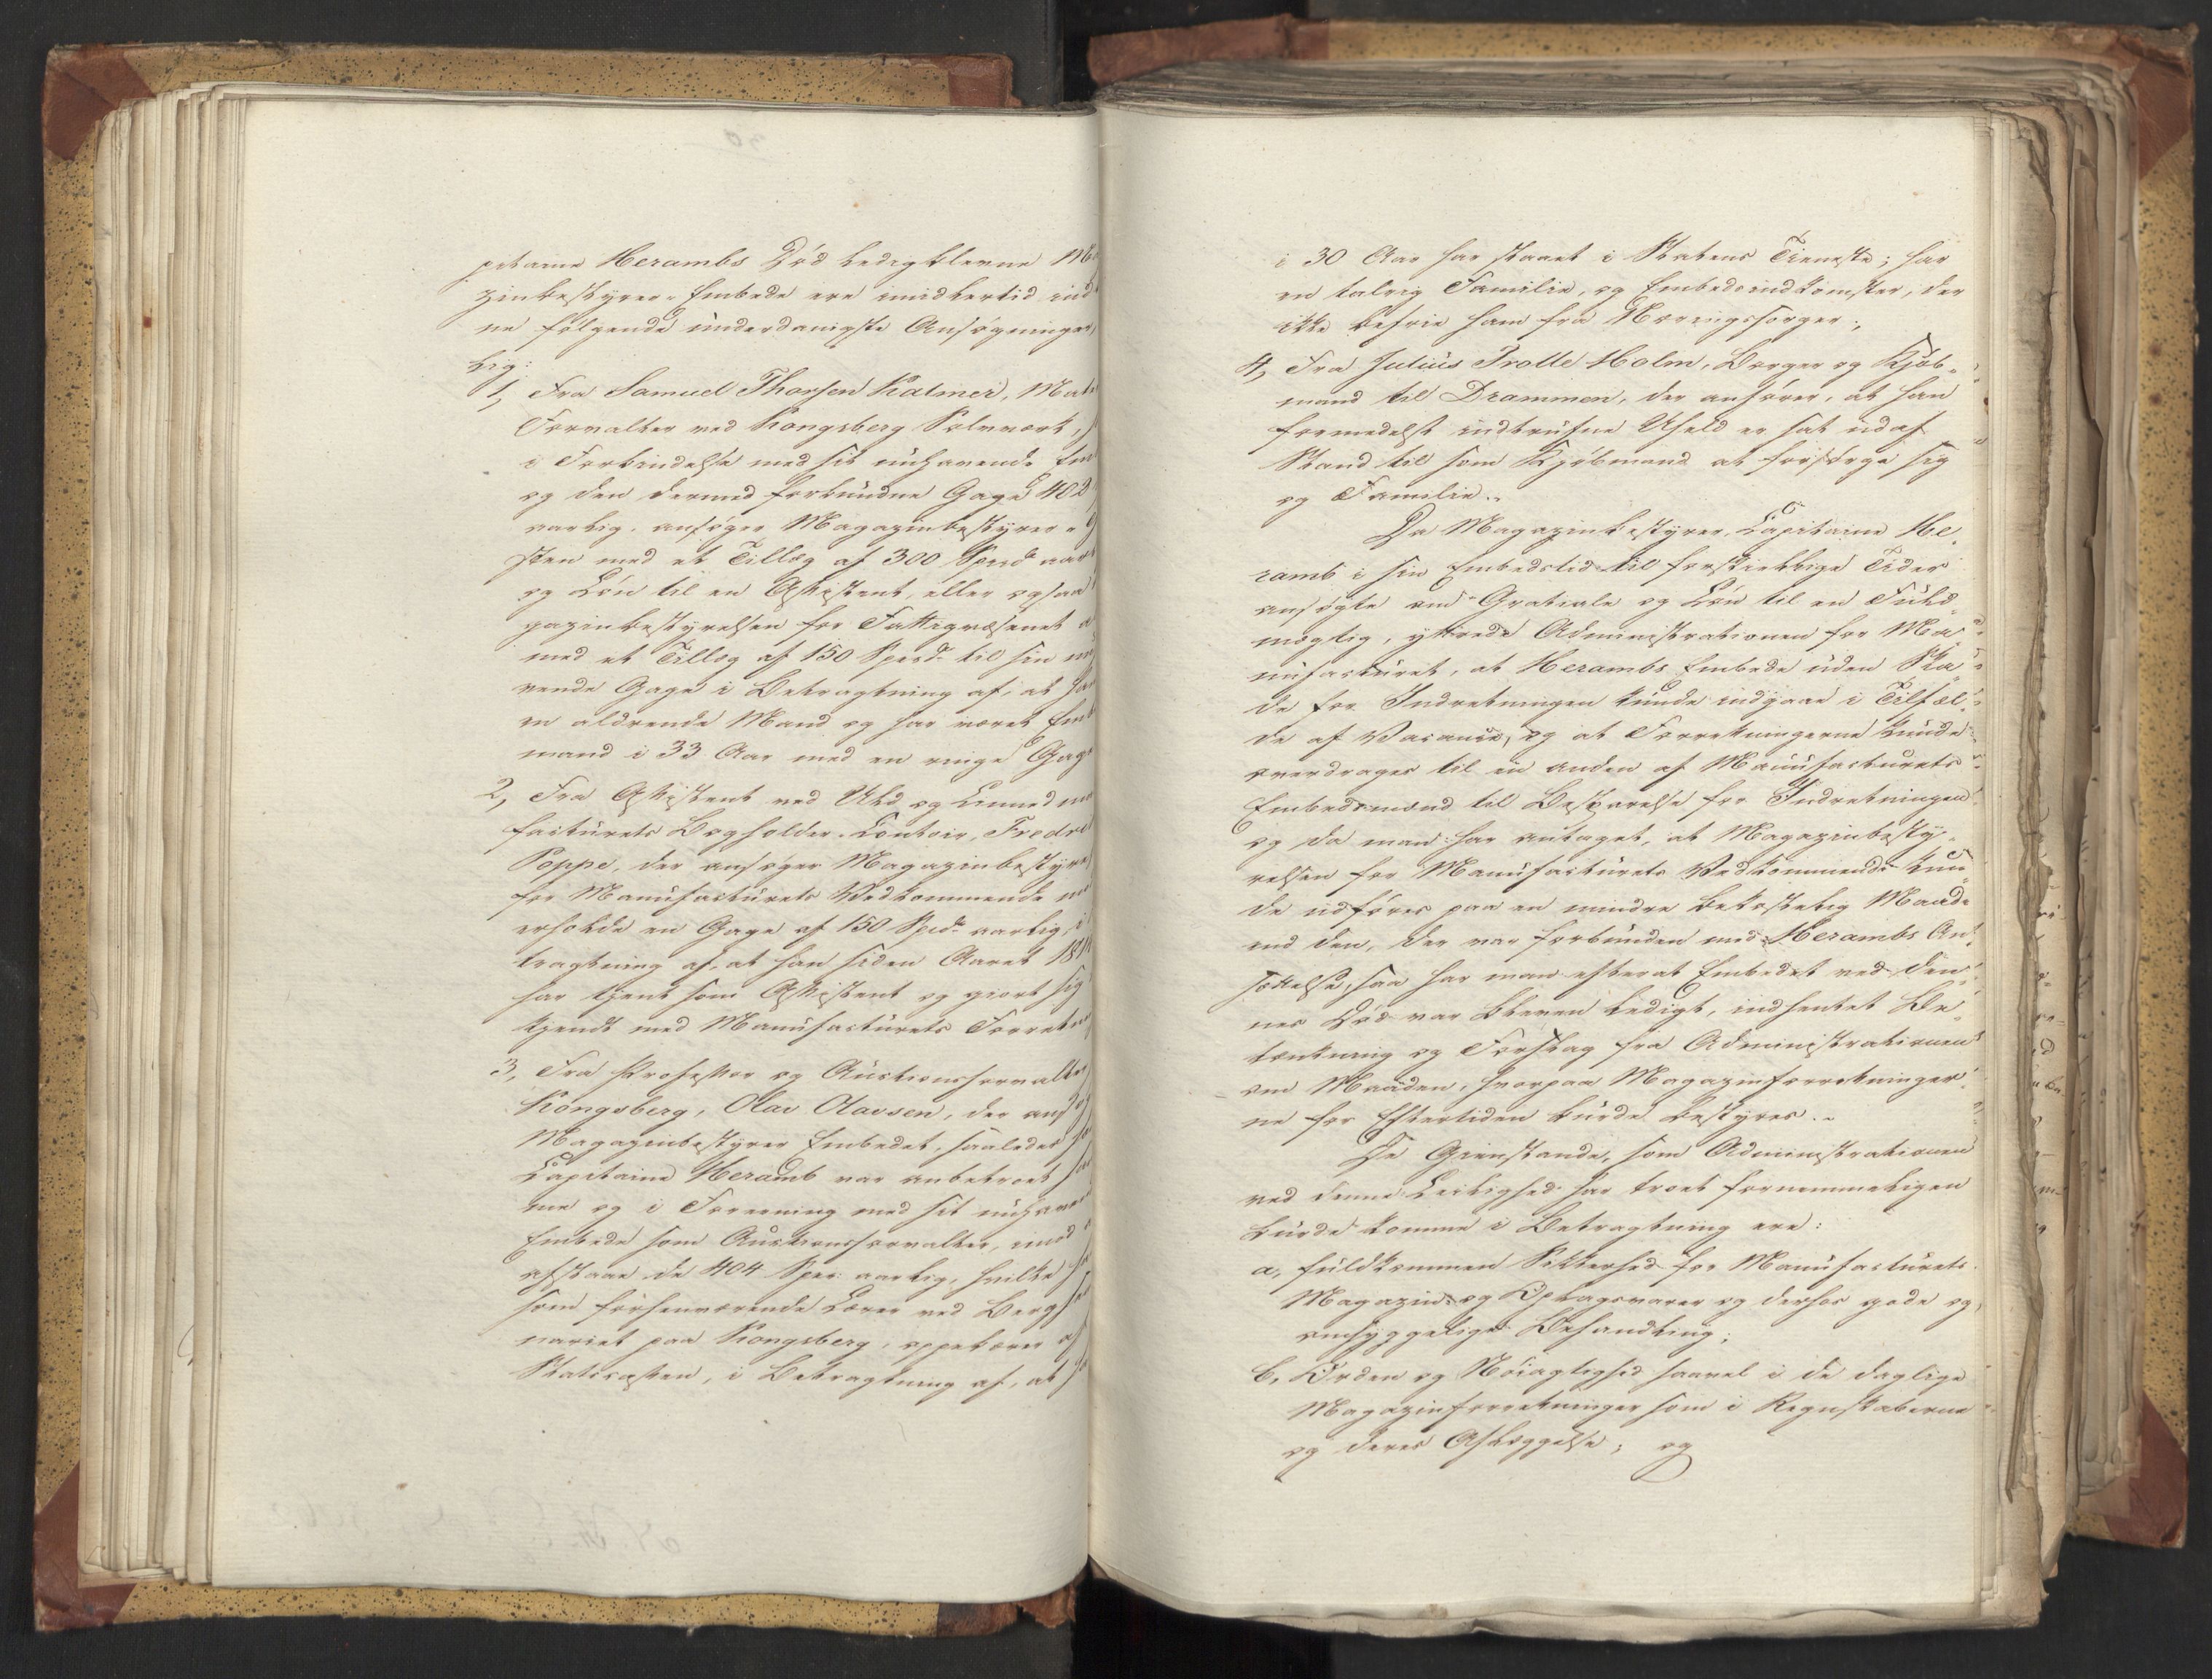 pitaine Herambs Død ledigblevne Ma
zinbestyrer-Embede ere imidlertid ind
ne følgende underdanigste Ansøgninger,
lig:
1, Fra Samuel Thorsen Kalmei, Mate
Forvalter ved Kongsberg Sølvværk,
i Forbindelse med sit nuhavende Em
og den dermed forbundne Gage 402
aarlig, ansøger Magazinbestyrer-
sten med et Tillæg af 300 Spd aar
og Løn til en Assistent, eller ogsaa
gazinbestyrelsen for Fattigvæsenet a
med et Tillæg af 150 Spesd. til sin nu
vende Gage i Betragtning af, at han
en aldrende Mand og har været Emb
mand i 33 Aar med en ringe Gage
2, Fra Assistent ved Uld og Linned ma
facturets Bogholder-Contoir, Fredri
Poppe, der ansøger Magazinbestyre
for Manufacturets Vedkommende
erholde en Gage af 150 Spd. aarlig i
tragtning af, at han siden Aaret 181
har tjent som Assistent og giort sig
kjendt med Manufacturets Forretn
3, Fra Professor og Auctionsforvalter
Kongsberg, Olav Olavsen, der ansøg
Magazinbestyrer Embedet, saaledes so
Capitaine Heramb var anbetroet sam
me og i Forening med sit nuhavend
Embede som Auctionsforvalter, mod a
afstaae de 404 Spec. aarlig, hvilke han
som forhenværende Lærer ved Bergse
nariet paa Kongsberg, oppebærer af
Statscassen, i Betragtning af, at han
i 30 Aar har staaet i Statens Tieneste; har
en talrig Familie, og Embedsindkomster, der
ikke befrie ham fra Næringssorger.,
4, Fra Julius Trolle Holm, Borger og Kjøb-
mand til Drammen, der anfører, at han
formedelst indtrufne Uheld er sat ud af
Stand til som Kjøbmand at forsørge sig
og Familie.
Da Magazinbestyrer, Capitaine He-
ramb i sin Embedstid til forskiellige Tider
ansøgte om Gratiale og Løn til en Fuld-
mægtig, yttrede Administrationen for Ma-
nufacturet, at Herambs Embede uden Ska-
de for Indretningen kunde indgaae i Tilfæl-
de af Vacance, og at Forretningerne kunde
overdrages til en anden af Manufacturets
Embedsmænd til Besparelse for Indretningen
og da man har antaget, at Magazinbesty-
relsen for Manufacturets Vedkommende kun-
de udføres paa en mindre bekostelig Maade
end den, der var forbunden med Herambs An-
sættelse, saa har man efterat Embedet ved den-
nes Død var bleven ledigt, indhentet Be-
tænkning og Forslag fra Administrationen
om Maaden, hvorpaa Magazinforretninger-
ne for Eftertiden burde bestyres.
De Gienstande, som Administrationen
ved denne Leilighed har troet fornemmeligen
burde komme i Betragtning ere:
a, fuldkommen Sikkerhed for Manufacturets
Magazin- og Oplagsvarer og derhos gode og
omhyggelige Behandling;
b, Orden og Nøiagtighed saavel i de daglige
Magazinforretninger som i Regnskaberne
og deres Aflæggelse; og